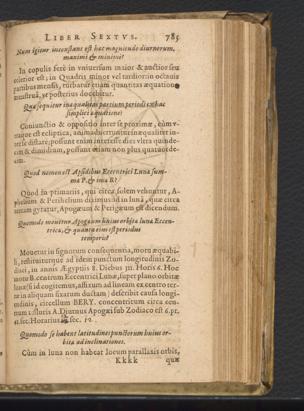 LIBER SEXTVS. 785
Num igitur inconstans est hæc magnitudo diurnorum,
maximi & minimi?
In copulis ferè in vniuersum maior & auctior seu
celerior est; in Quadris minor vel tardior: in octauis
partibus mensis, turbatur etiam quantitas æquationis
menstruæ, vt posterius docebitur.
Quæ sequitur inæqualitas partium periodi ex hac
simplici æquatione?
Coniunctio & oppositio inter se proximæ, cùm v-
est ecliptica, animaduertuntur inæqualiter in-
ter se distare; possunt enim interesse dies vltra quinde-
cim & dimidium, possunt etiam non plus quatuorde-
cim.
Quod nomen est Apsidibus Eccentrici Lunæ sum-
mæ P. & imæ R?
Quod in primariis, qui circa solem voluuntur, A-
phelium & Perihelium diximus id in luna, quæ circa
terram gyratur, Apogæum & Perigæum est dicendum.
Quomodo mouetur Apogæum huius orbita luna Eccen-
trica, & quanta eius est periodus
temporis?
Mouetur in signorum consequentia, motu æquabi-
li, restituiturque ad idem punctum longitudinis Zo-
diaci, in annis Ægyptiis 8. Diebus
motu B. centrum Eccentrici Lunæ, super plano orbitæ
lunæ (si id cogitemus, affixum ad lineam ex centro ter-
ræ in aliquam fixarum ductam) describit causa longi-
tudinis, circellum BERY. concentricum circa cen-
trum
Quomodo se habent latitudines punctorum huius or-
bita ad inclinationes.
Cùm in luna non habeat locum parallaxis orbis,
Kkkk quæ